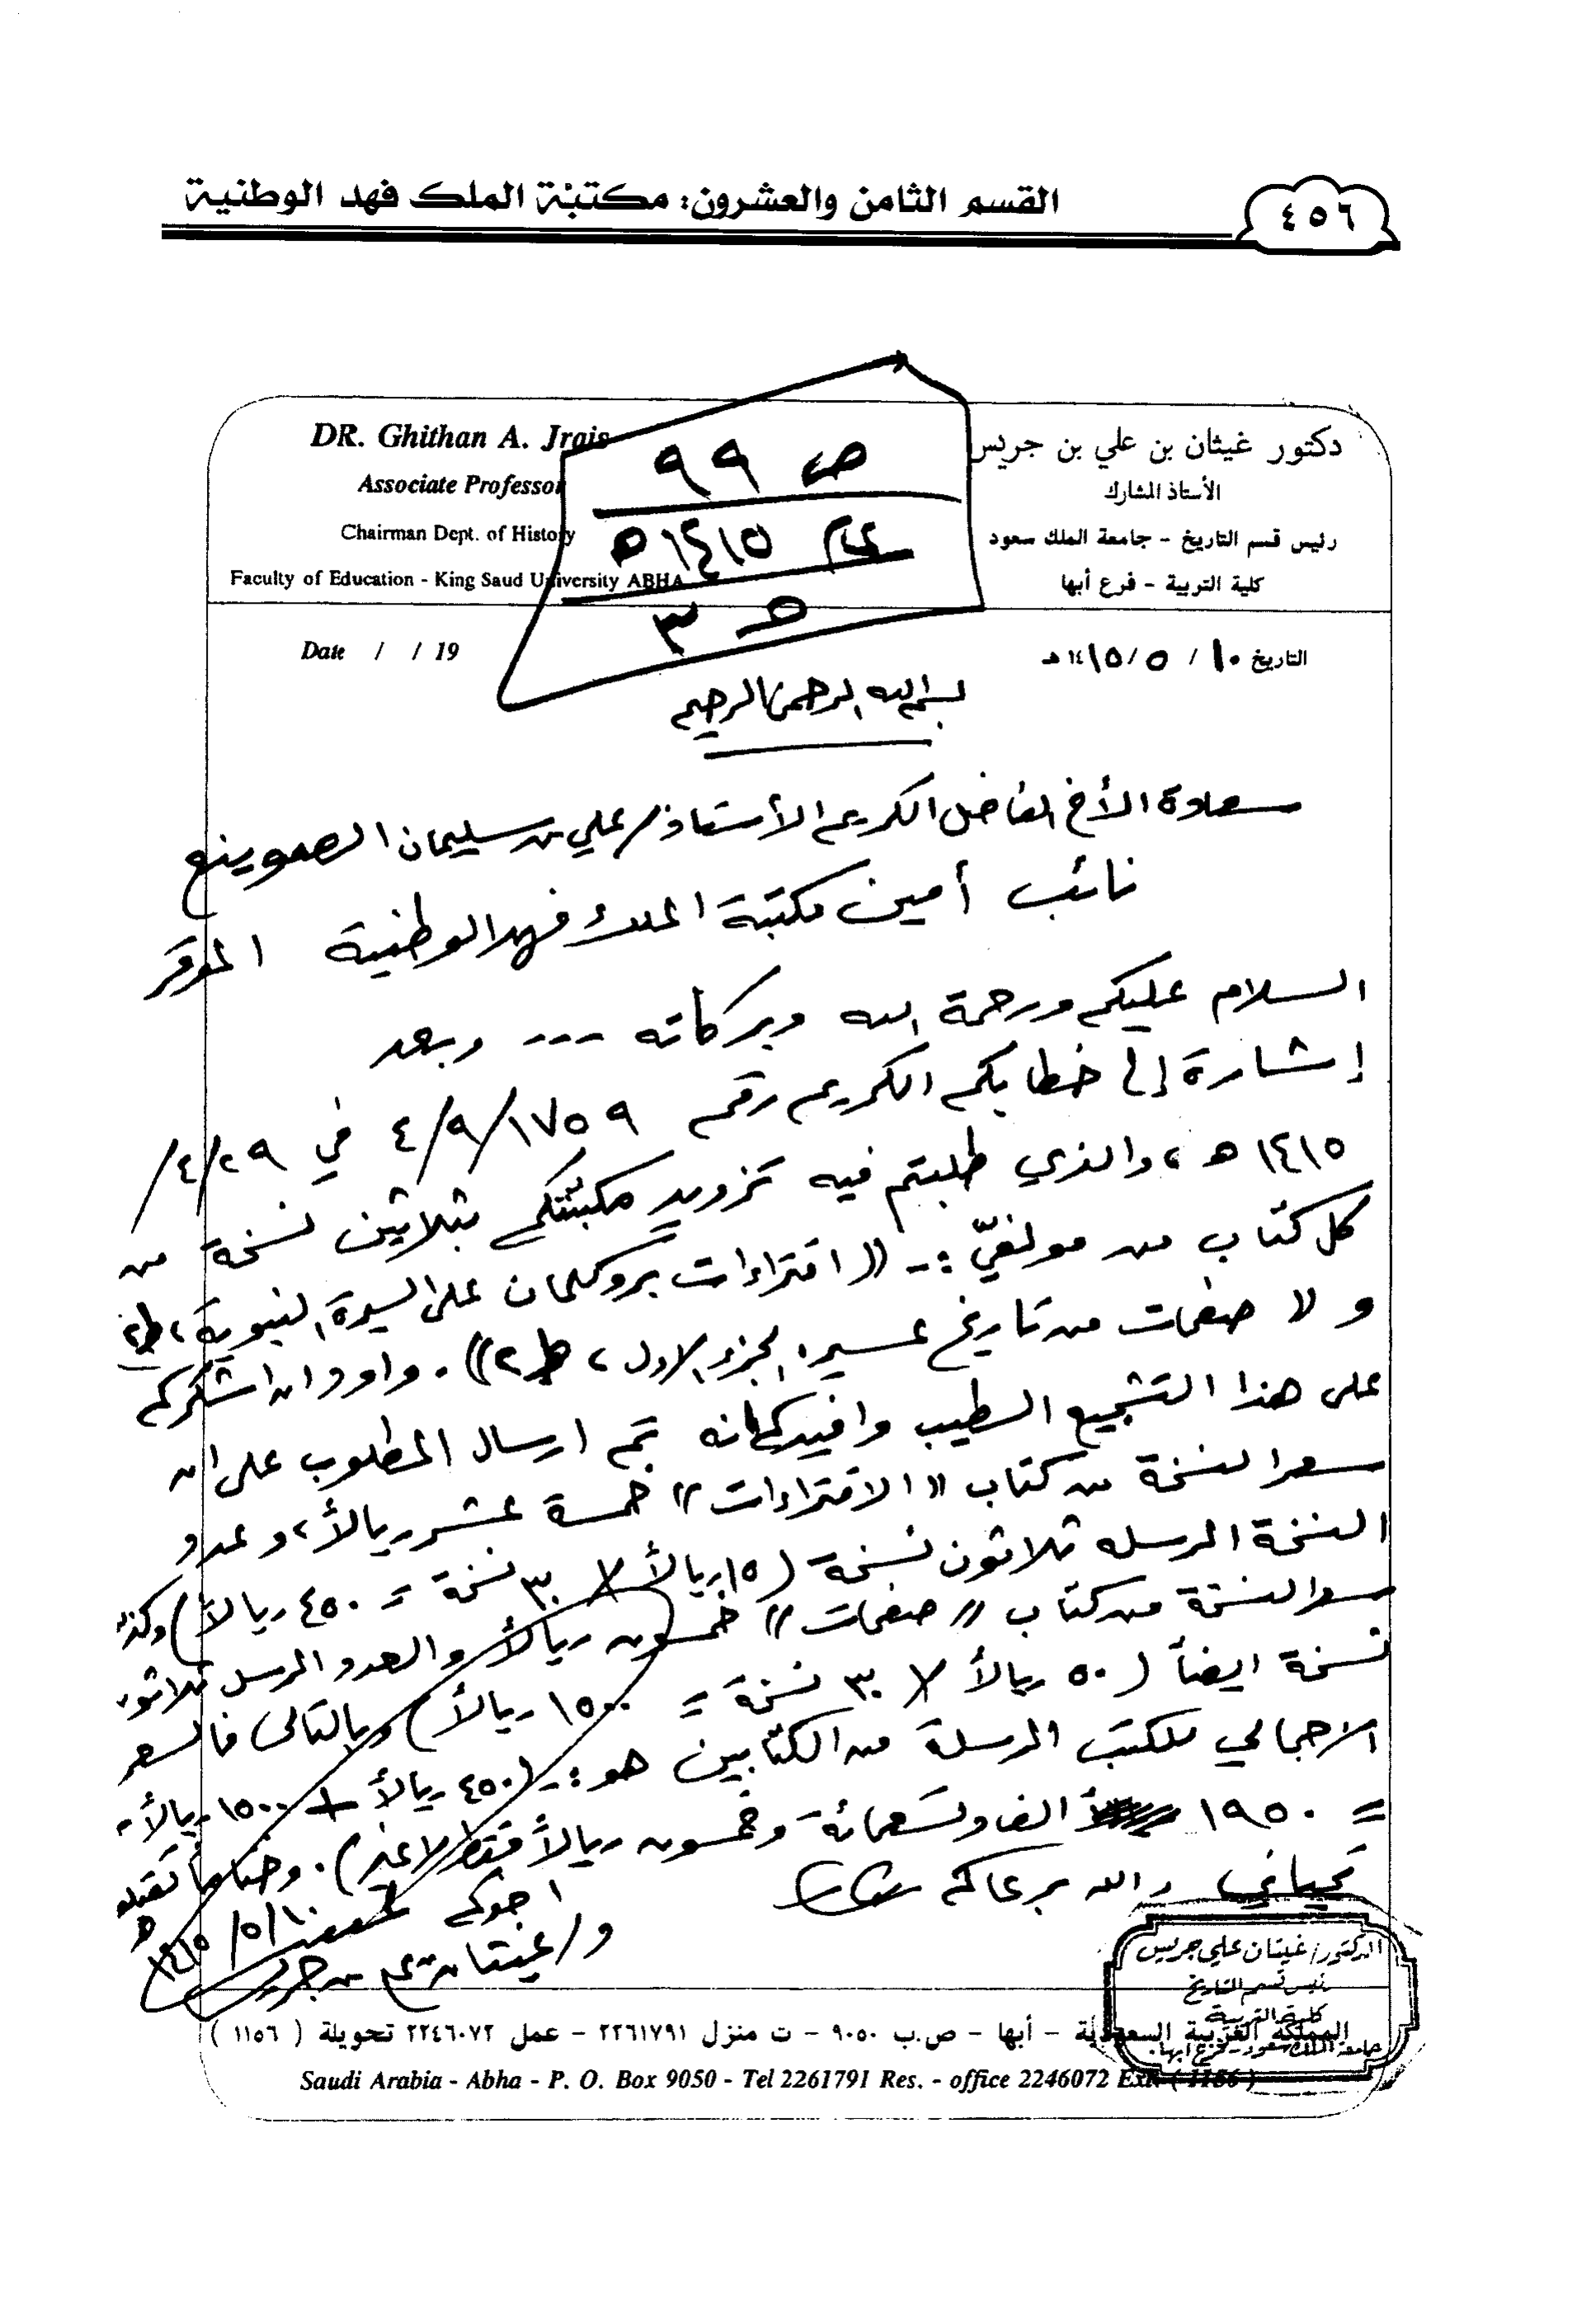 ٤٥٦
القسم الثامن والعشرون: مكتبة الملك فهد الوطنية
DR. Ghithan A. Jrais
Associate Professor
Chairman Dept. of History
Faculty of Education - King Saud University ABHA
ص ٩٩
عام ١٤١٥ ه
ح ٣
دكتور غيثان بن علي بن جريس
الأستاذ المشارك
رئيس قسم التاريخ - جامعة الملك سعود
كلية التربية - فرع أبها
Date / / 19
التاريخ ١٠ / ٥ / ١٤١٥ هـ
بسم الله الرحمن الرحيم
سعادة الأخ الفاضل الكريم الأستاذ / علي بن سليمان الصوينع
نائب أمين مكتبة الملك فهد الوطنية الموقر
السلام عليكم ورحمة الله وبركاته --- وبعد
إشارة إلى خطابكم الكريم رقم ١٧٥٩/٩/٤ في ٤/٢٩/
١٤١٥ هـ، والذي طلبتم فيه تزويد مكتبتكم بثلاثين نسخة من
كل كتاب من مؤلفيّ :- (( افتراءات بروكلمان على السيرة النبوية، ط٢
و لا صفحات من تاريخ عسير، الجزء الاول، ط٢)). واود ان اشكركم
على هذا التشجيع الطيب وافيدكم انه تم ارسال المطلوب على ان
سعر النسخة من كتاب (( الافتراءات )) خمسة عشر ريالاً، وعدد
النسخة المرسله ثلاثون نسخة ( ١٥ ريالاً X ٣٠ نسخة = ٤٥٠ ريالاً ) وكذا
سعر النسخة من كتاب (( صفحات )) خمسون ريالاً والعدد المرسل ثلاثون
نسخة ايضاً ( ٥٠ ريالاً X ٣٠ نسخة = ١٥٠٠ ريالاً ) وبالتالى فالسعر
الاجمالي للكتب المرسلة من الكتابين هو :- ( ٤٥٠ ريالاً + ١٥٠٠ ريالاً
= ١٩٥٠ الف وتسعمائة وخمسون ريالاً فقط لاغير ). وختاماً تقبلوا
تحياتي والله يرعاكم
اخوكم
د/ غيثان بن علي بن جريس
١٠/٥/١٤١٥ هـ
الدكتور/ غيثان علي جريس
رئيس قسم التاريخ
كلية التربية
جامعة الملك سعود - فرع ابها
المملكة العربية السعودية - أبها - ص.ب ٩٠٥٠ - ت منزل ٢٢٦١٧٩١ - عمل ٢٢٤٦٠٧٢ تحويلة ( ١١٥٦ )
Saudi Arabia - Abha - P. O. Box 9050 - Tel 2261791 Res. - office 2246072 Ext. ( 1186 )